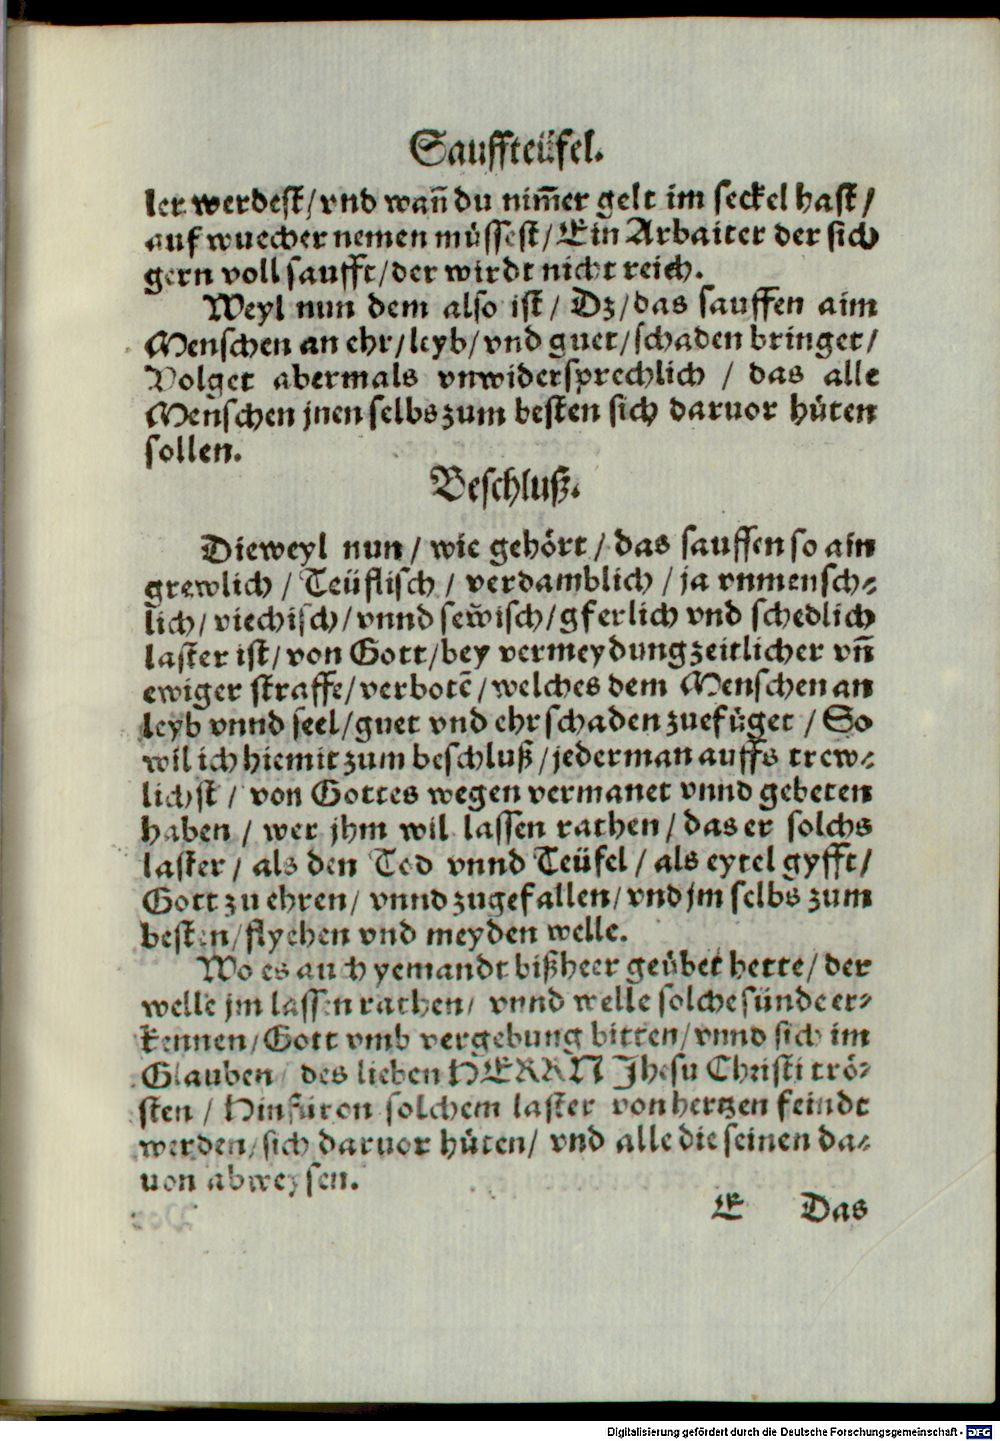 Sauffteüfel.
ler werdest/ vnd wañ du nim̃er gelt im seckel hast/
auf wuecher nemen müssest/ Ein Arbaiter der sich
gern voll saufft/ der wirdt nicht reich.
Weyl nun dem also ist/ Dz/ das sauffen aim
Menschen an ehr/ leyb/ vnd guet/ schaden bringet/
Volget abermals vnwidersprechlich / das alle
Menschen jnen selbs zum besten sich daruor hüten
sollen.
Beschluß.
Dieweyl nun/ wie gehört/ das sauffen so ain
grewlich / Teüflisch / verdamblich / ja vnmensch-
lich/ viechisch/ vnnd sew̃isch/ gferlich vnd schedlich
laster ist/ von Gott/ bey vermeydung zeitlicher vñ
ewiger straffe/ verbotē/ welches dem Menschen an
leyb vnnd seel/ guet vnd ehr schaden zuefüget / So
wil ich hiemit zum beschluß/ jederman auffs trew-
lichst / von Gottes wegen vermanet vnnd gebeten
haben / wer jhm wil lassen rathen/ das er solchs
laster/ als den Tod vnnd Teüfel / als eytel gyfft/
Gott zu ehren/ vnnd zugefallen/ vnd jm selbs zum
besten/ flyehen vnd meyden welle.
Wo es auch yemandt bißheer geübet hette/ der
welle jm lassen rathen/ vnnd welle solche sünde er-
kennen/ Gott vmb vergebung bitten/ vnnd sich im
Glauben / des lieben HERRN Jhesu Christi trö-
sten / Hinfüron solchem laster von hertzen feindt
werden/ sich daruor hüten/ vnd alle die seinen da-
uon abweysen.
E Das
Digitalisierung gefördert durch die Deutsche Forschungsgemeinschaft - DFG